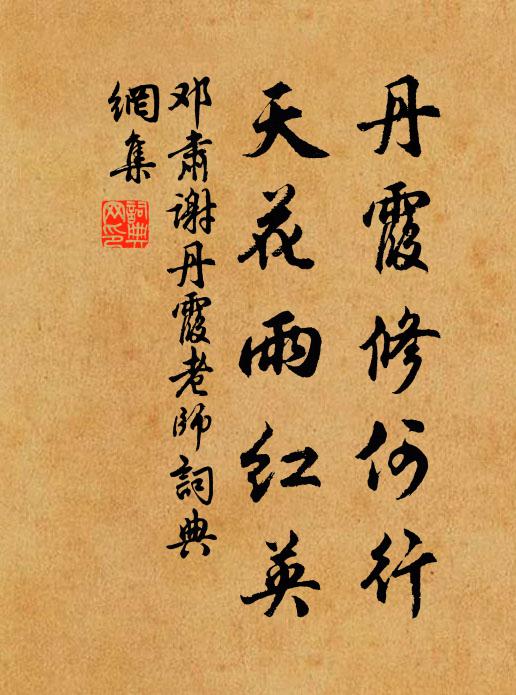 丹霞修何行
天花雨红英
邓肃谢丹霞老师詞典
網集
詞典
网印